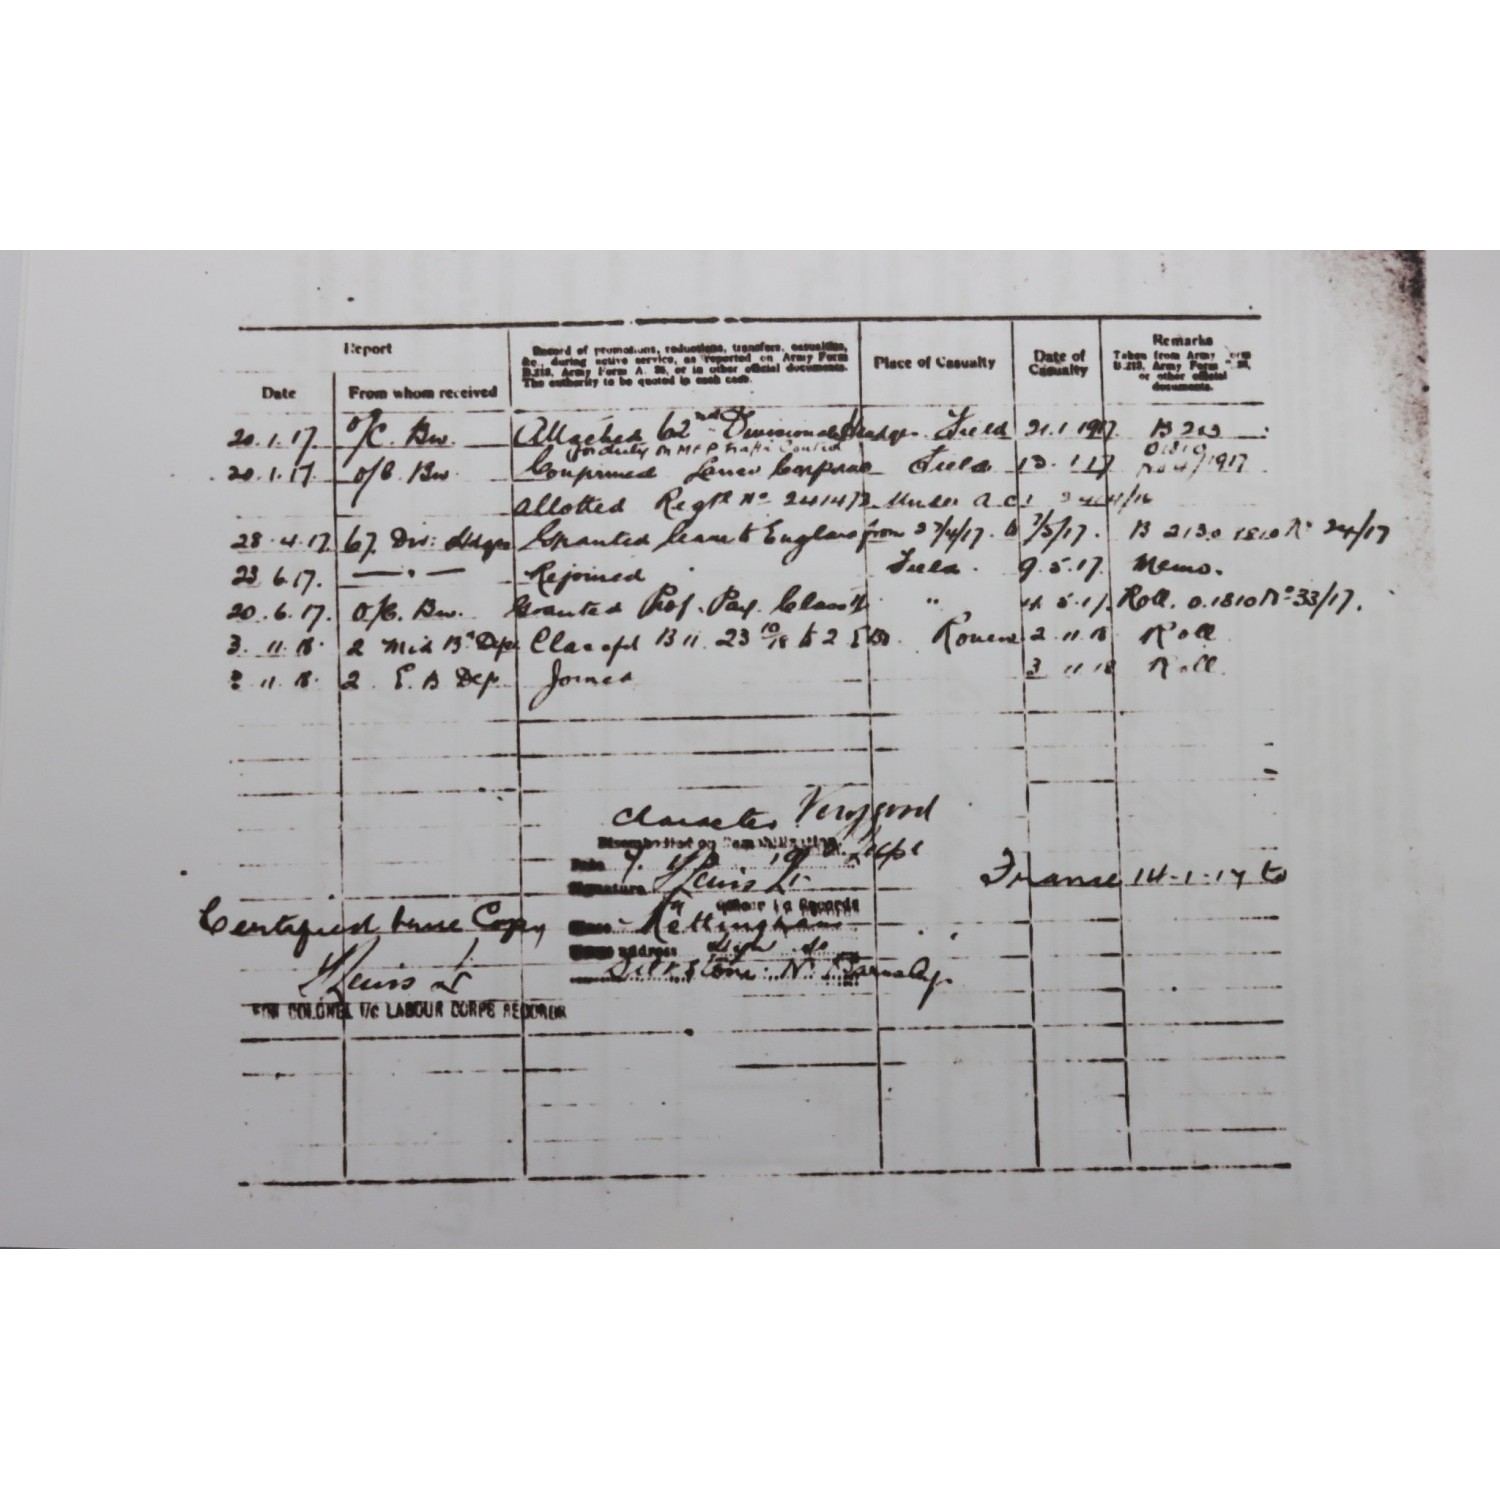 Report
Record of promotions, reductions, transfers, casualties, &c., during active service, as reported on Army Form B.213, Army Form A. 36, or in other official documents. The authority to be quoted in each case.
Place of Casualty
Date of Casualty
Remarks
Taken from Army Form B.213, Army Form A. 36, or other official documents.
Date
From whom received
20.1.17. O/C. Bn. Attached 62nd Divisional Hdqrs Field 21.1.1917 B 213
for duty on M.F.P Traffic Control
20.1.17. O/C Bn. Confirmed Lance Corporal Field 1917
Allotted Regtl No 241473 Under A.C.I.
28.4.17. Div: Hdqrs Granted leave to England from 27/4/17. to 7/5/17. B 213 O 1810 No 24/17
23.6.17. — " — Rejoined Field. 9.5.17. Memo.
20.6.17. O/C. Bn. Granted Prof. Pay. Class II " 5.17. Roll. O.1810 No 33/17.
3.11.18. 2 Mid Bn Dep Classfd B 11. 23 10/18 to 2 E.B.D. Rouen 2.11.18 Roll
3.11.18. 2. E. B Dep. Joined 3 11 18 Roll.
Character Very good
Disembodied on Demobilization
Date
Signature Lewis Lt.
France 14-1-17 to
Officer i/c Records
Certified true Copy
Place Nottingham
address
Lewis Lt
Silkstone. Nr Barnsley.
FOR COLONEL I/c LABOUR CORPS RECORDS